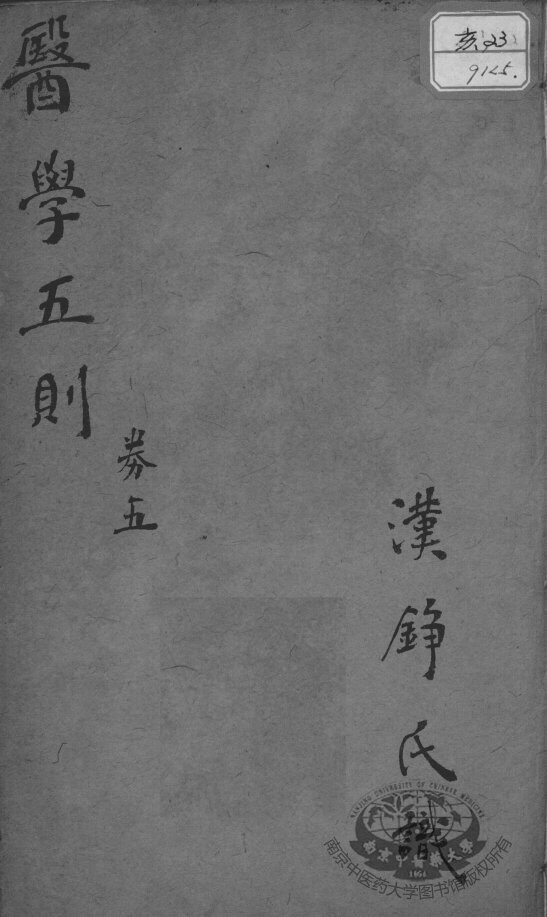 醫學五則
券五
漢錚氏識
9125.
NANJING UNIVERSITY OF CHINESE MEDICINE
南京中醫藥大學
1954
南京中医药大学图书馆版权所有